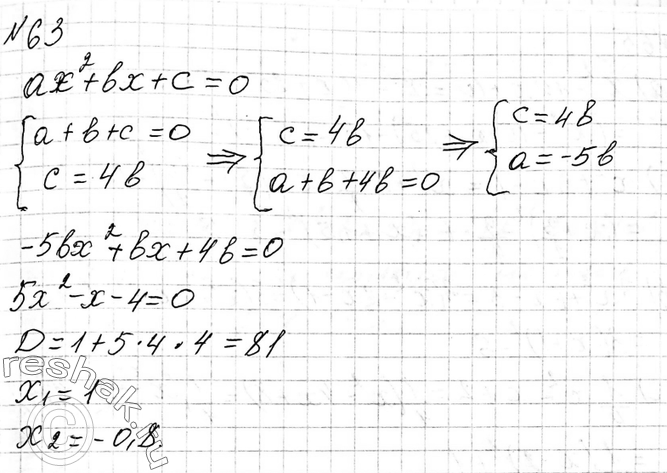 №63
ax²+bx+c=0
{a+b+c=0 c=4b ⇒ {c=4b a+b+4b=0 ⇒ {c=4b a=-5b
-5bx²+bx+4b=0
5x²-x-4=0
D=1+5·4·4=81
x₁=1
x₂=-0,8.
reshak.ru
©